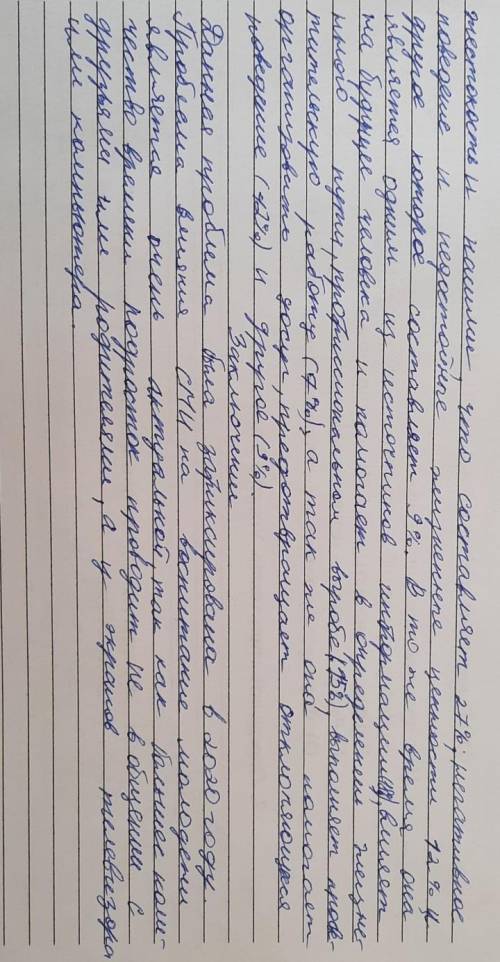 жестокость и насилии, что составляет 27%; негативное
поведение и недостойные жизненные ценности 12% и
другое которое составляет 9%. В то же время она
является одним из источников информации, влияет
на будущее человека и помогает в определении жизне-
нного пути, профессиональном выборе (15%), выполняет просв-
тительскую работу (7%), а так же она помогает
организовать досуг, предотвращает отклоняющееся
поведение (12%) и другое (9%).
Заключение
Данная проблема была зафиксирована в 2020 году.
Проблема влияния СМИ на воспитание молодежи
является очень актуальной, так как большее коли-
чество времени подросток проводит не в общении с
друзьями или родителями, а у экранов телевизора
или компьютера.